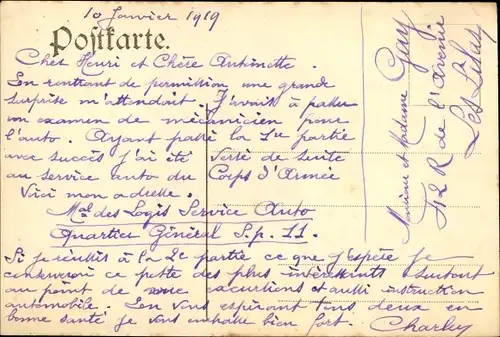 10 Janvier 1919
Postkarte.
Cher Henri et Chère Antinette.
En rentrant de permission une grande
surprise m'attendait. J'avais à passer
un examen de mécanicien pour
l'auto. Ayant passé la 1re partie
avec succès j'ai été versé de suite
au service auto du Corps d'Armée
Voici mon adresse.
Mal des Logis Service Auto
Quartier Général S.p. 11.
Si je réussis à la 2e partie ce que j'espère je
conserverai ce poste des plus intéressants surtout
au point de vue excurtions et aussi instruction
automobile. En vous espérant tous deux en
bonne santé je vous embrasse bien fort. Charley
Monsieur et Madame Gay
42 R de l'Avenir
Les Lilas